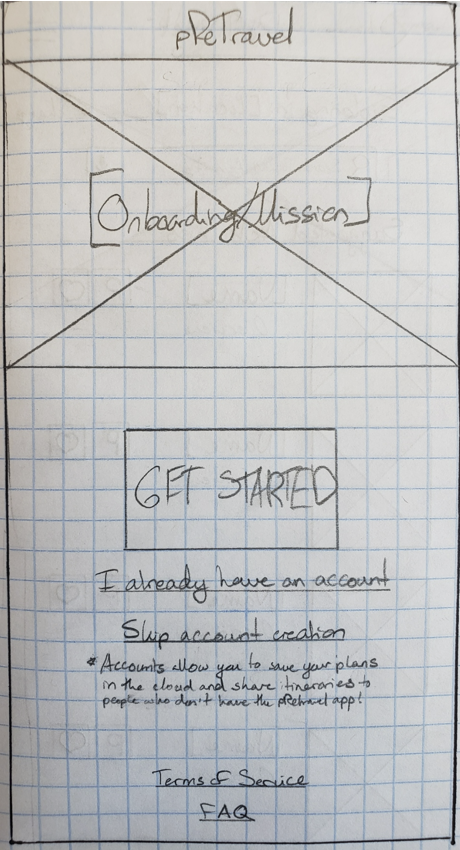 pReTravel
[Onboarding/Mission]
GET STARTED
I already have an account
Skip account creation
* Accounts allow you to save your plans
in the cloud and share itineraries to
people who don't have the pRetravel app!
Terms of Service
FAQ